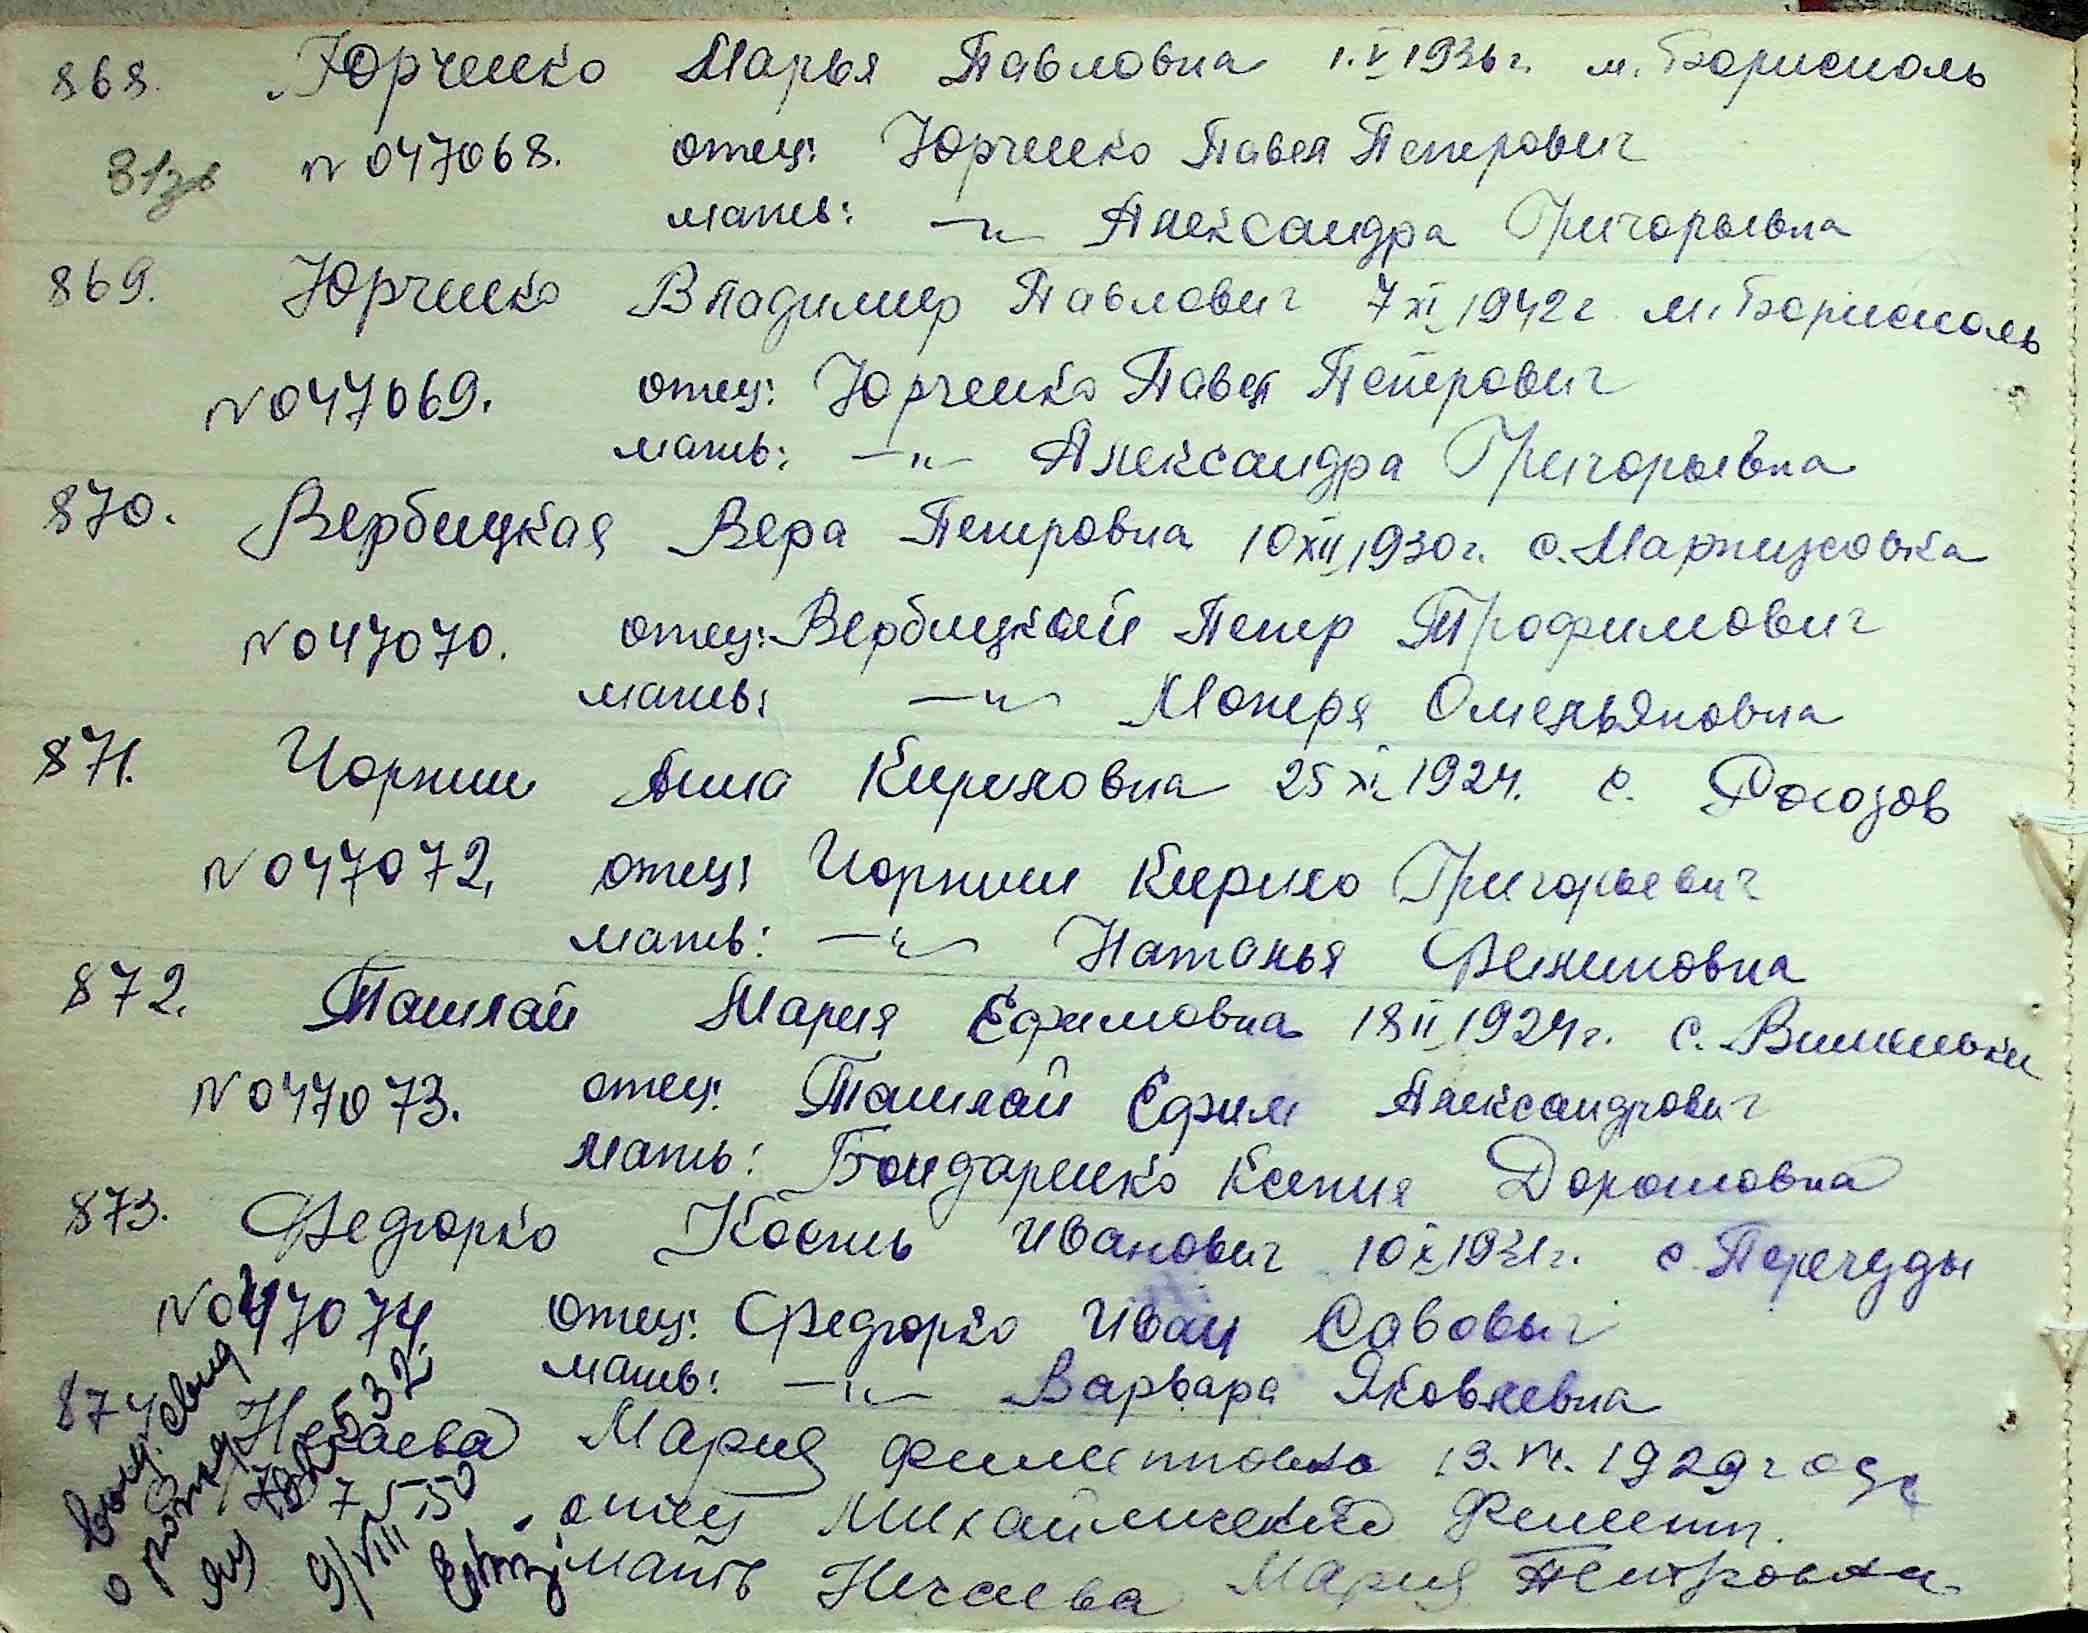 868. Юрченко Марья Павловна 1.V 1936 г. м. Борисполь
N 047068. отец: Юрченко Павел Петрович
мать: —"— Александра Григорьевна
869. Юрченко Владимир Павлович 7 XI 1942 г. м. Борисполь
N 047069. отец: Юрченко Павел Петрович
мать: —"— Александра Григорьевна
870. Вербицкая Вера Петровна 10 XII 1930 г. с. Мартусовка
N 047070. отец: Вербицкий Петр Трофимович
мать: —"— Мотеря Омельяновна
871. Чорний Анна Кириловна 25 XI 1924. с. Рогозов
N 047072. отец: Чорний Кирило Григорьевич
мать: —"— Наталья Филиповна
872. Ташлай Мария Ефимовна 18 II 1924 г. с. Вишеньки
N 047073. отец: Ташлай Ефим Александрович
мать: Бондаренко Ксения Дорошовна
873. Федорко Кость Иванович 10 X 1931 г. с. Перегуды
N 047074. отец: Федорко Иван Савович
мать: —"— Варвара Яковлевна
874. Нечаева Мария Филипповна 13. VI. 1929 года
отец Михайличенко Филипп.
мать Нечаева Мария Петровна
Выд. свид
о рожд
ЯЦ
9/VIII 50